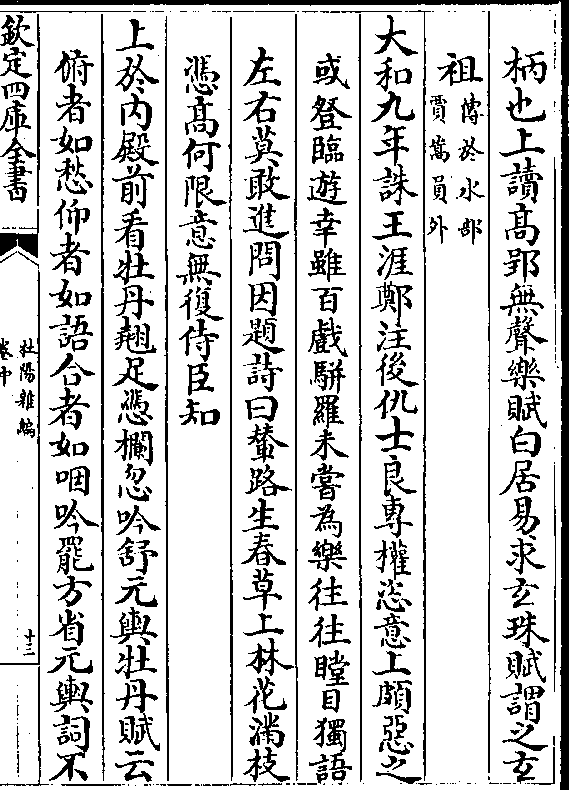 柄也上讀高郢無聲樂賦白居易求玄珠賦謂之玄
祖傳於水部
賈嵩員外
大和九年誅王涯鄭注後仇士良專權恣意上頗惡之
或登臨遊幸雖百戲駢羅未嘗為樂往往瞠目獨語
左右莫敢進問因題詩曰輦路生春草上林花滿枝
憑高何限意無復侍臣知
上於内殿前看牡丹翹足憑欄忽吟舒元輿牡丹賦云
俯者如愁仰者如語合者如咽吟罷方省元輿詞不
欽定四庫全書
杜陽雜編
卷中
十三